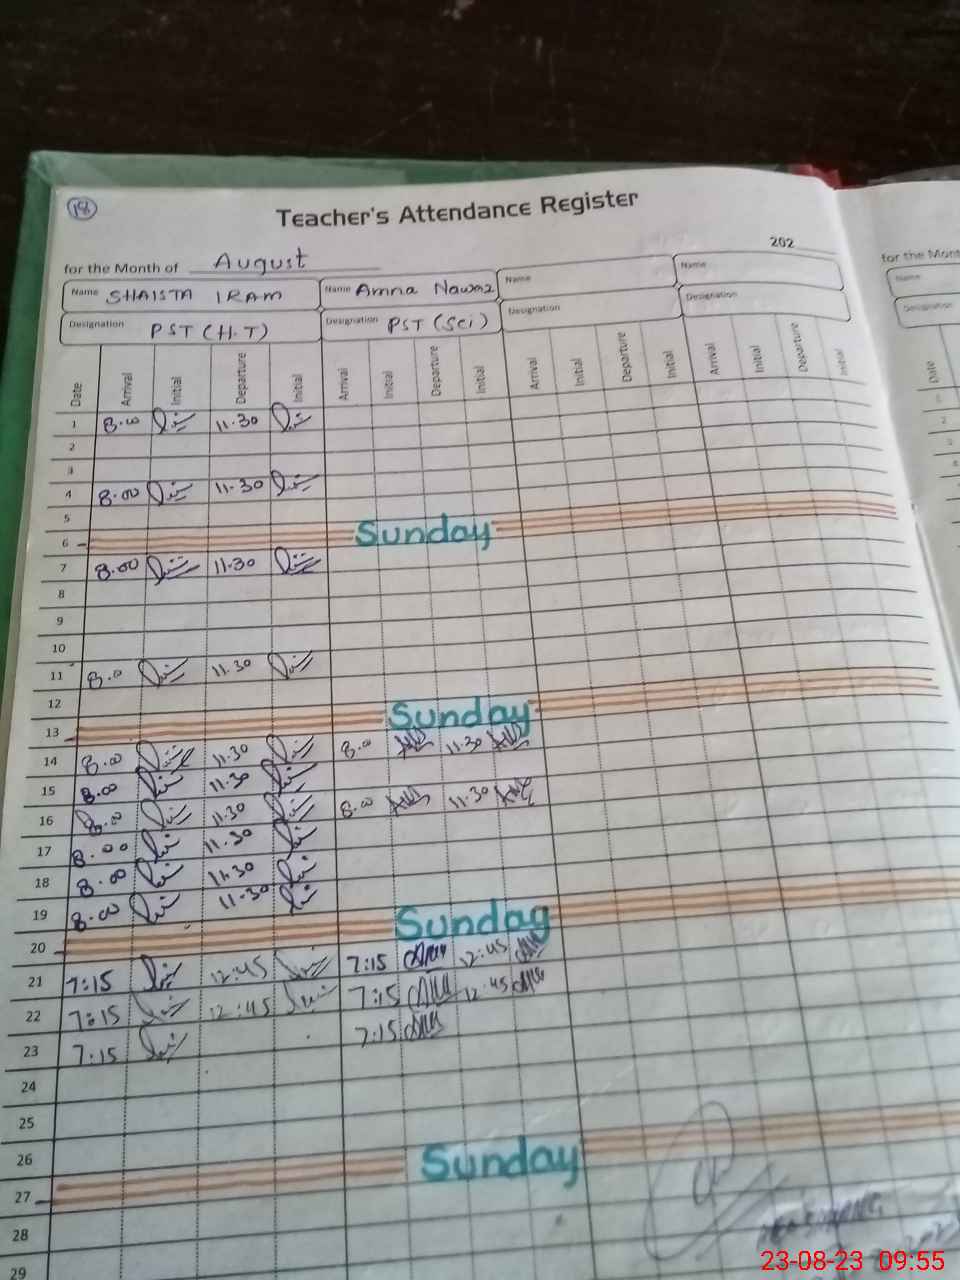 18
Teacher's Attendance Register
202
for the Month of August
for the Mont
Name SHAISTA IRAM Name Amna Nawaz Name Name Name
Designation PST (H.T) Designation PST (Sci) Designation Designation Designation
Date Arrival Initial Departure Initial Arrival Initial Departure Initial Arrival Initial Departure Initial Arrival Initial Departure Initial Date
1 8.00 11.30
2
3
4 8.00 11.30
5
6 Sunday
7 8.00 11.30
8
9
10
11 8.0 11.30
12
13 Sunday
14 8.00 11.30 8.00 11.30
15 8.00 11.30
16 8.00 11.30 8.00 11.30
17 8.00 11.30
18 8.00 11.30
19 8.00 11.30
20 Sunday
21 7:15 12:45 7:15 12:45
22 7:15 12:45 7:15 12:45
23 7:15 7:15
24
25
26
27 Sunday
28
29
23-08-23 09:55